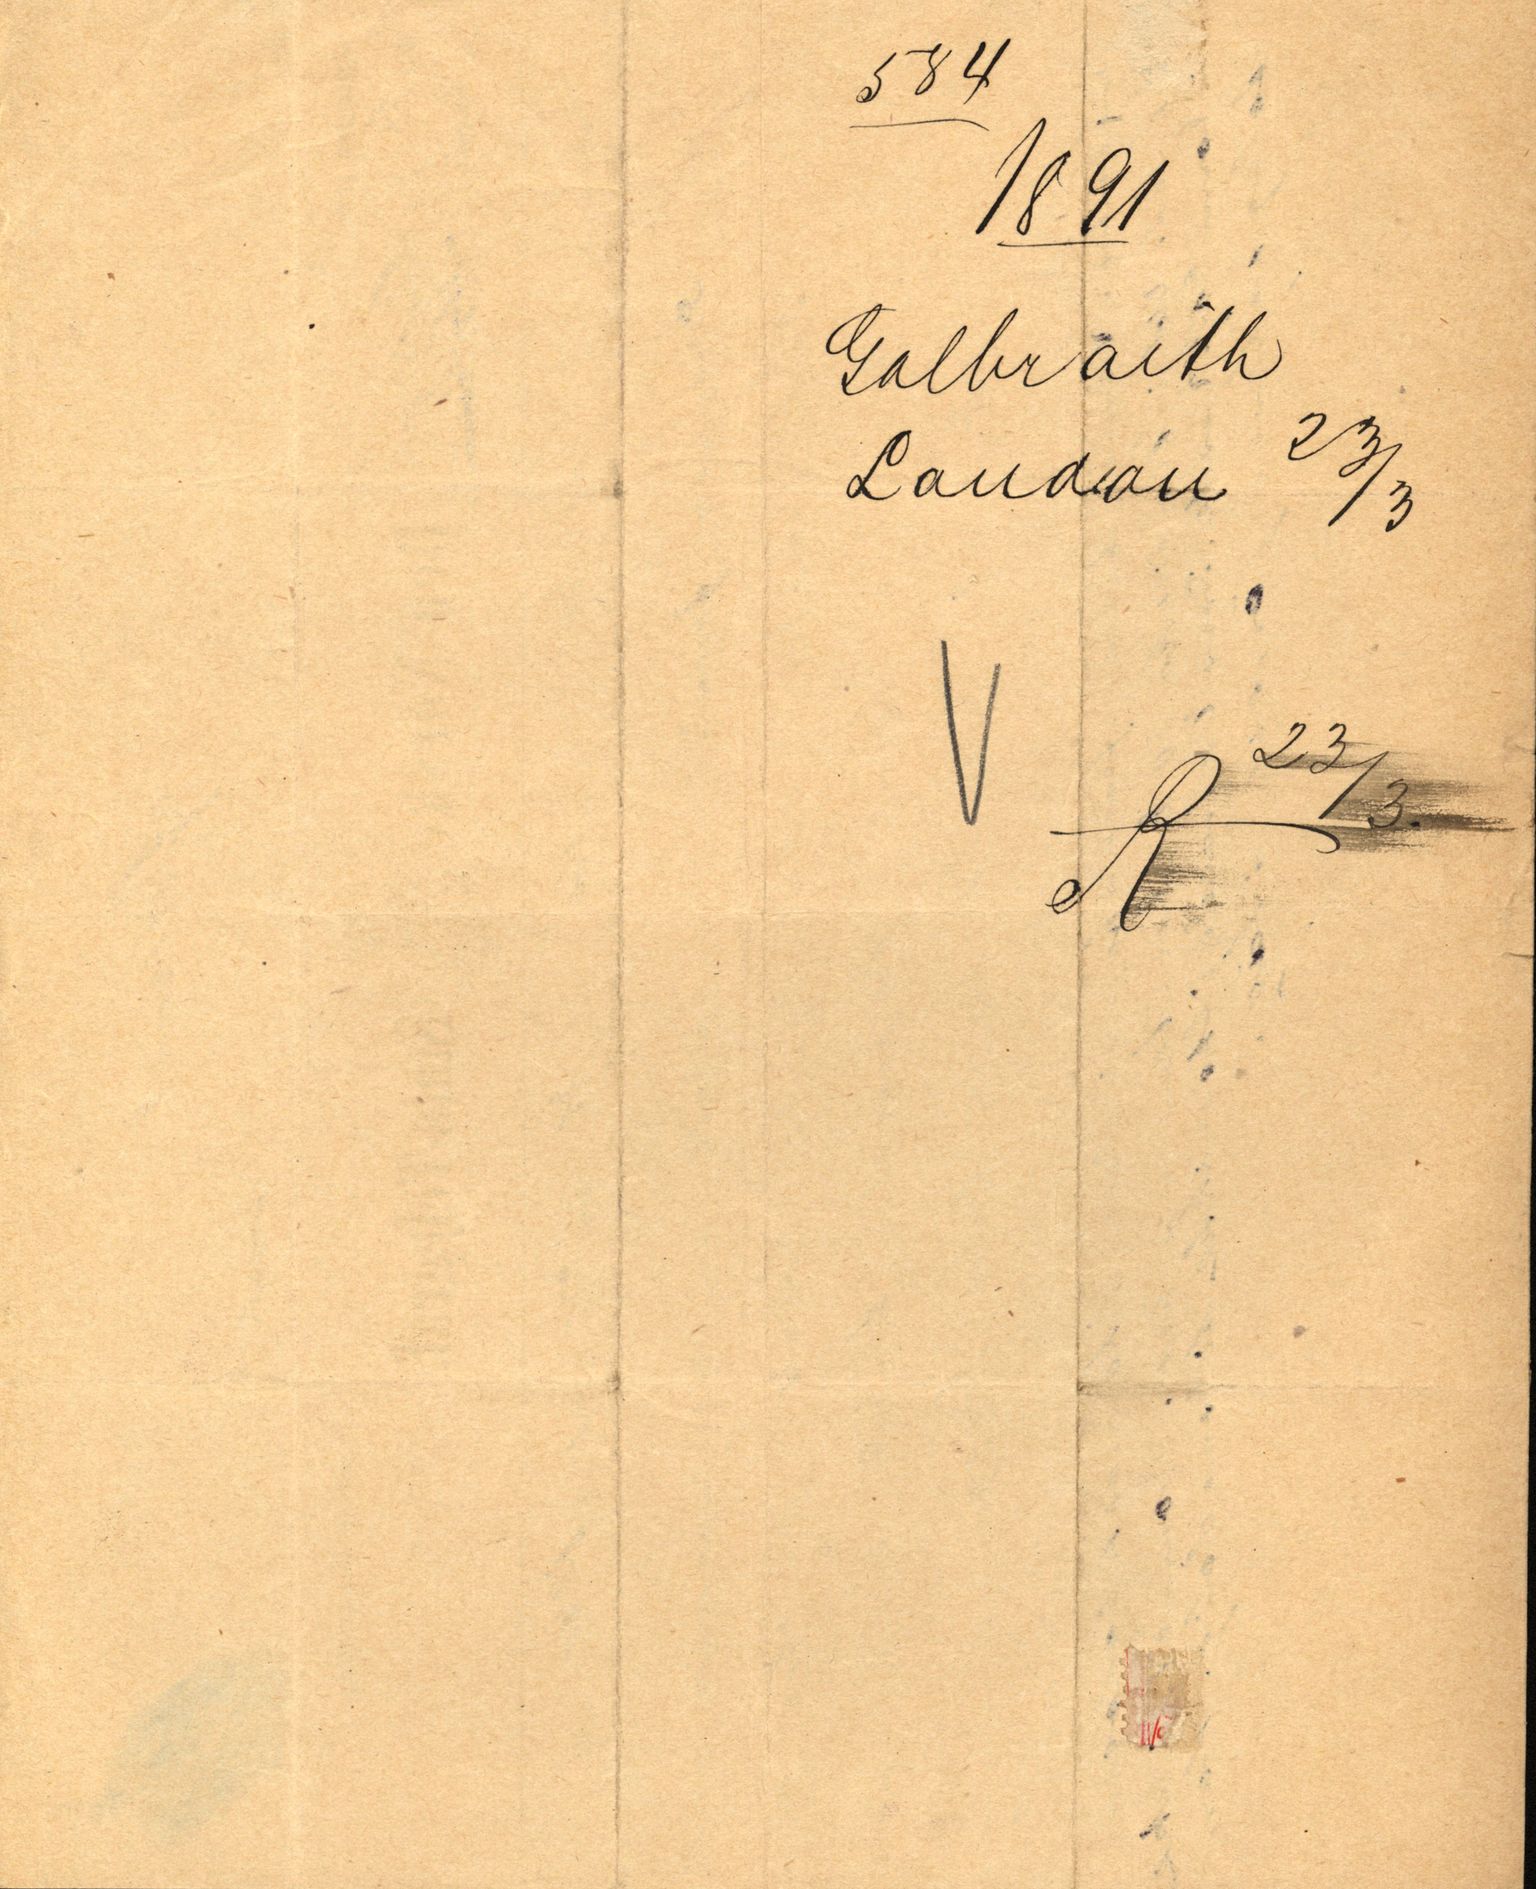 584
1891
Galbraith
London 23/3
V
R 23/3.